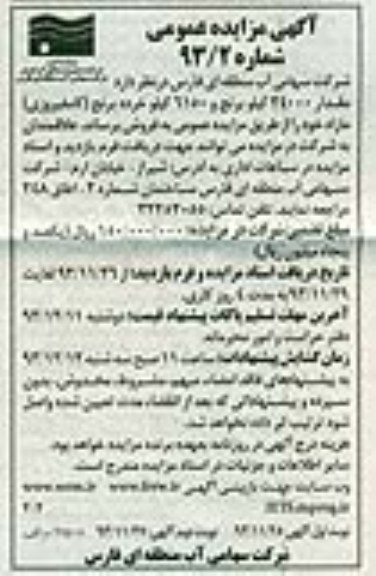 آگهی مزایده عمومی
شماره ۹۳/۲
شرکت سهامی آب منطقه ای فارس در نظر دارد
مقدار ۲۴۰۰۰ کیلو برنج و ۶۱۵۰ کیلو خرده برنج (کامفیروزی)
مازاد خود را از طریق مزایده عمومی به فروش برساند. علاقمندان
به شرکت در مزایده می توانند جهت دریافت فرم بازدید و اسناد
مزایده در ساعات اداری به آدرس: شیراز - خیابان ارم - شرکت
سهامی آب منطقه ای فارس ساختمان شماره ۲ - اتاق ۲۴۸
مراجعه نمایند. تلفن تماس:
مبلغ تضمین شرکت در مزایده: ۱۵۰/۰۰۰/۰۰۰ ریال (یکصد و
پنجاه میلیون ریال)
تاریخ دریافت اسناد مزایده و فرم بازدید: از ۹۳/۱۱/۲۶ لغایت
۹۳/۱۱/۲۹ به مدت ۴ روز کاری.
آخرین مهلت تسلیم پاکات پیشنهاد قیمت: دوشنبه ۹۳/۱۲/۱۱
دفتر حراست و امور محرمانه.
زمان گشایش پیشنهادات: ساعت ۱۱ صبح سه شنبه ۹۳/۱۲/۱۲
به پیشنهادهای فاقد امضاء، مبهم، مشروط، مخدوش، بدون
سپرده و پیشنهاداتی که بعد از انقضاء مدت تعیین شده واصل
شود ترتیب اثر داده نخواهد شد.
هزینه درج آگهی در روزنامه بعهده برنده مزایده خواهد بود.
سایر اطلاعات و جزئیات در اسناد مزایده مندرج است.
وب سایت جهت بازبینی آگهی: www.frrw.ir
نوبت اول آگهی ۹۳/۱۱/۲۵ نوبت دوم آگهی
شرکت سهامی آب منطقه ای فارس